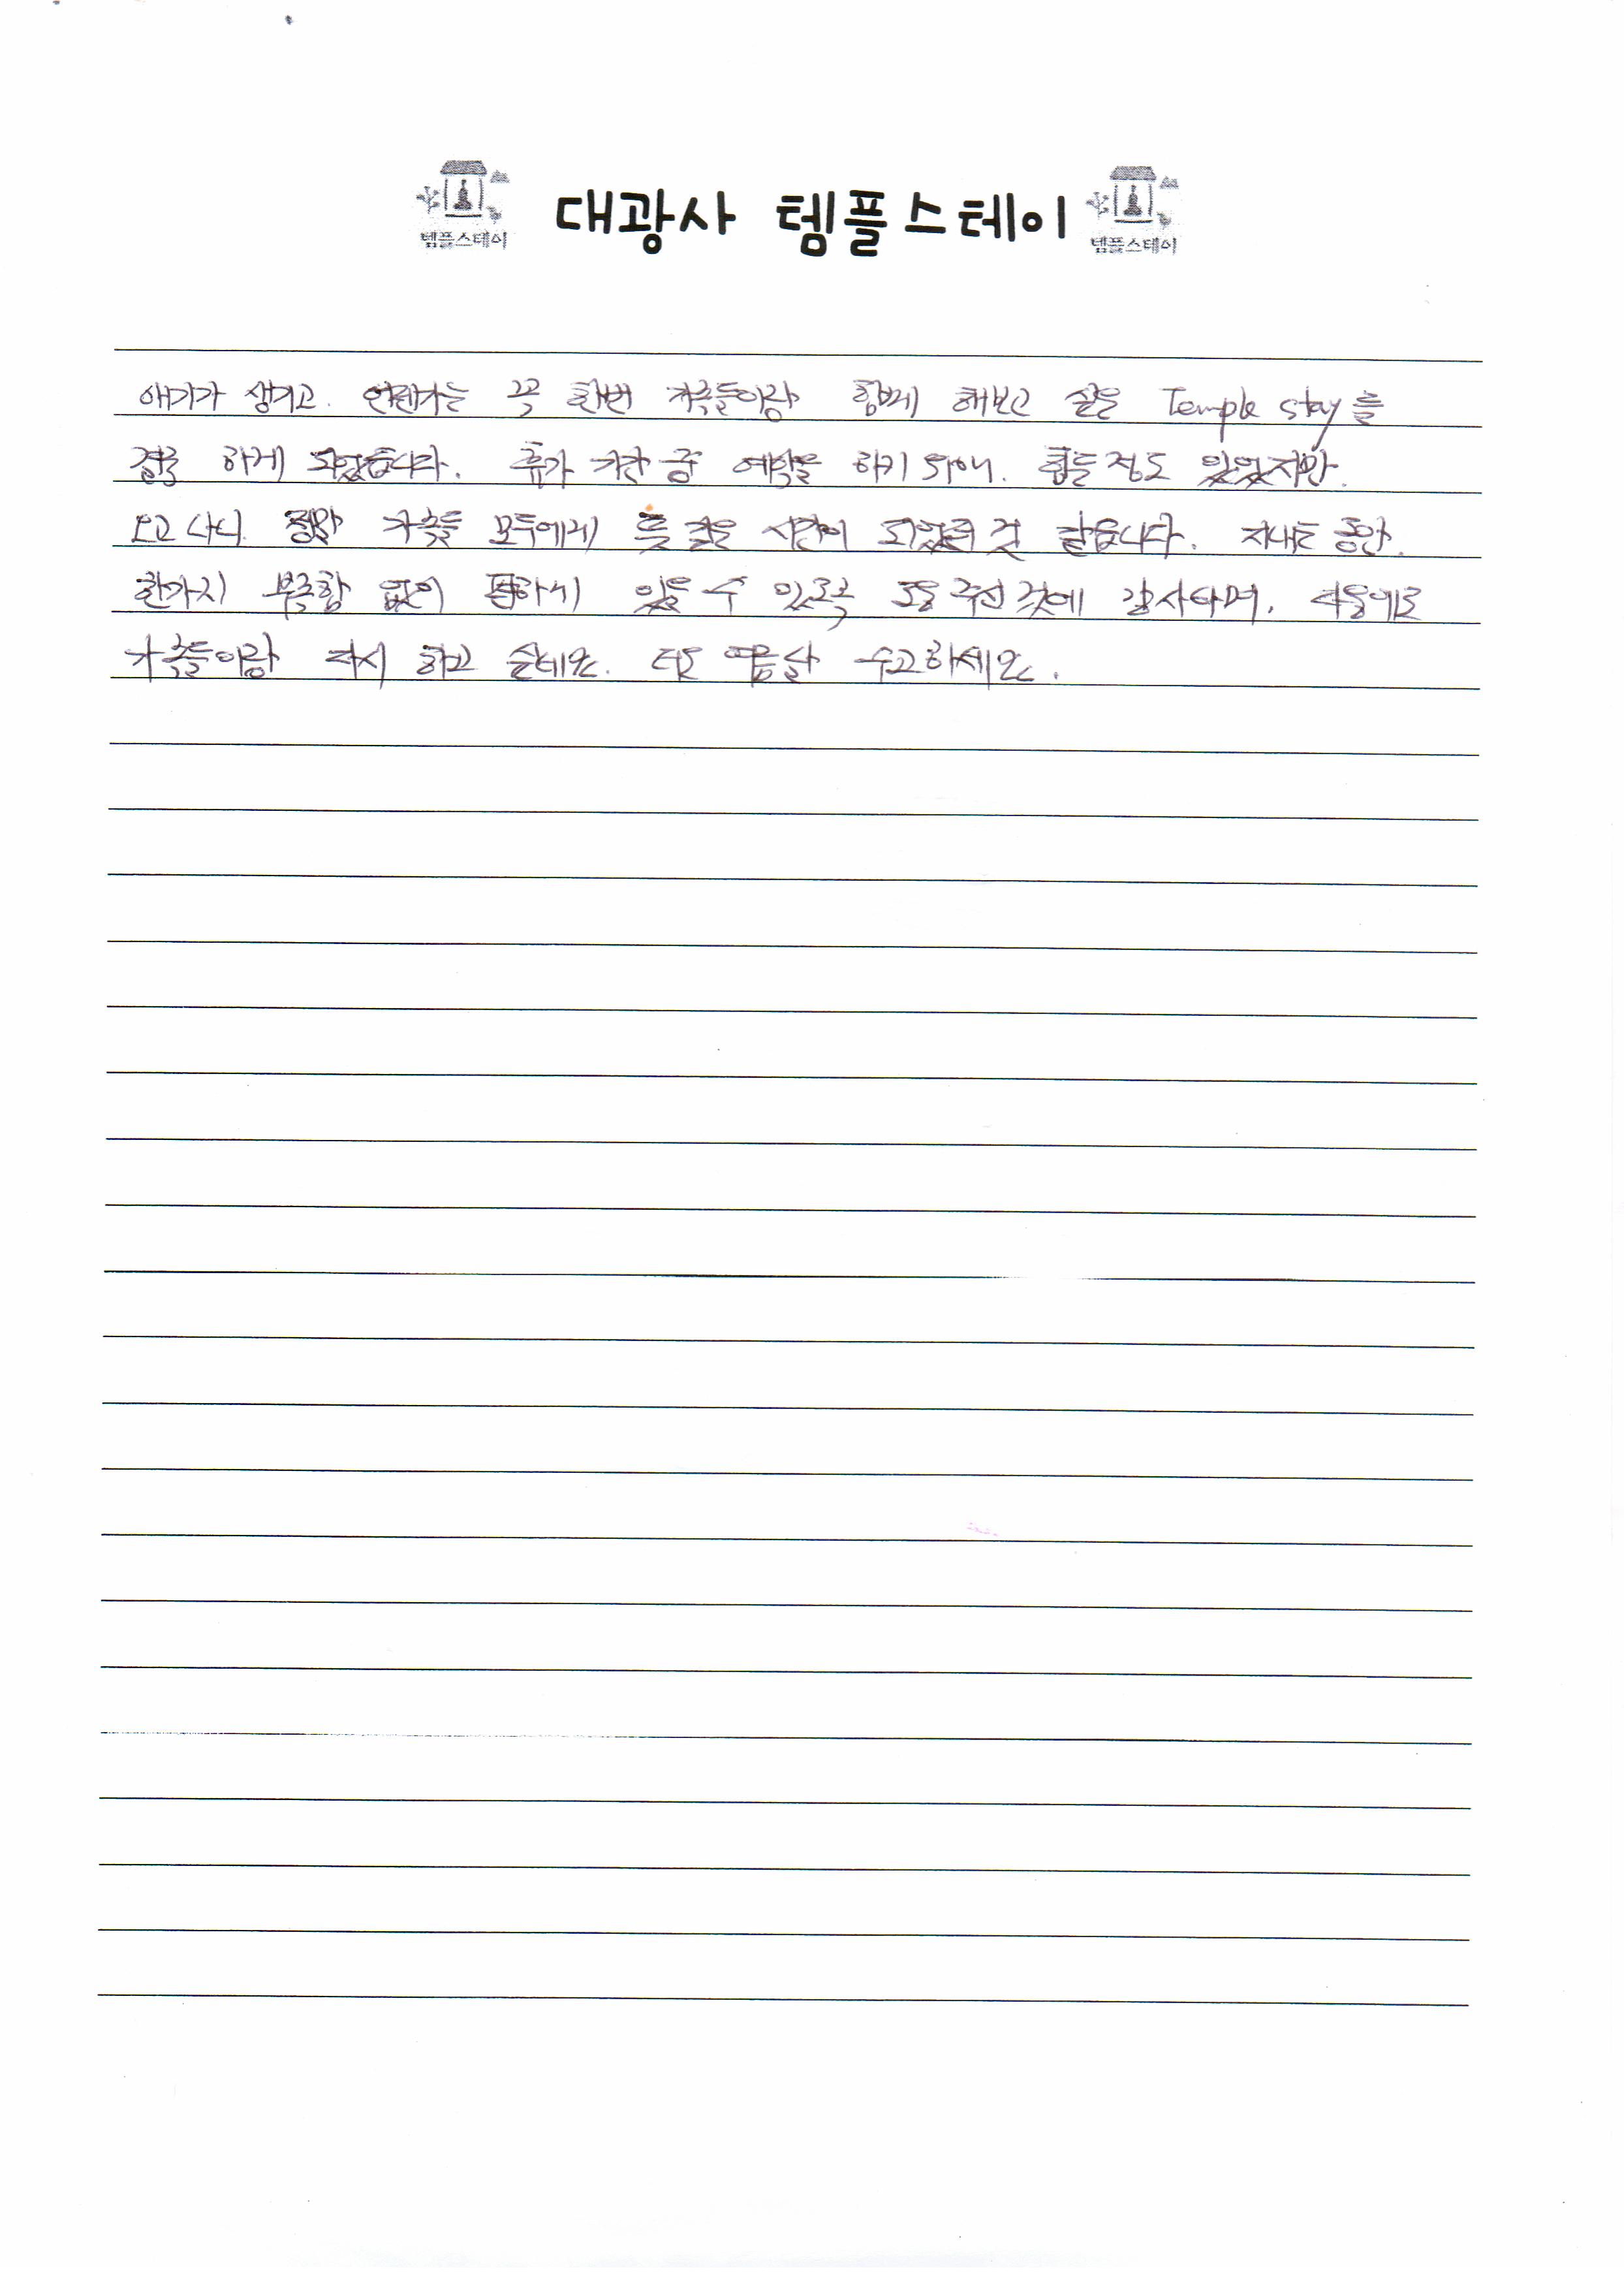 대광사 템플스테이
템플스테이
템플스테이
애기가 생기고. 언젠가는 꼭 한번 가족들이랑 함께 해보고 싶은 Temple stay를
결국 하게 되었습니다. 휴가 기간 중 예약을 하기 위해. 힘든 점도 있었지만.
오고 나니 정말 가족들 모두에게 뜻 깊은 시간이 되었던 것 같습니다. 지내는 동안.
한가지 부족함 없이 편하게 있을 수 있도록 도움 주신 것에 감사하며, 다음에도
가족들이랑 다시 하고 싶네요. 더운 여름날 수고하세요.